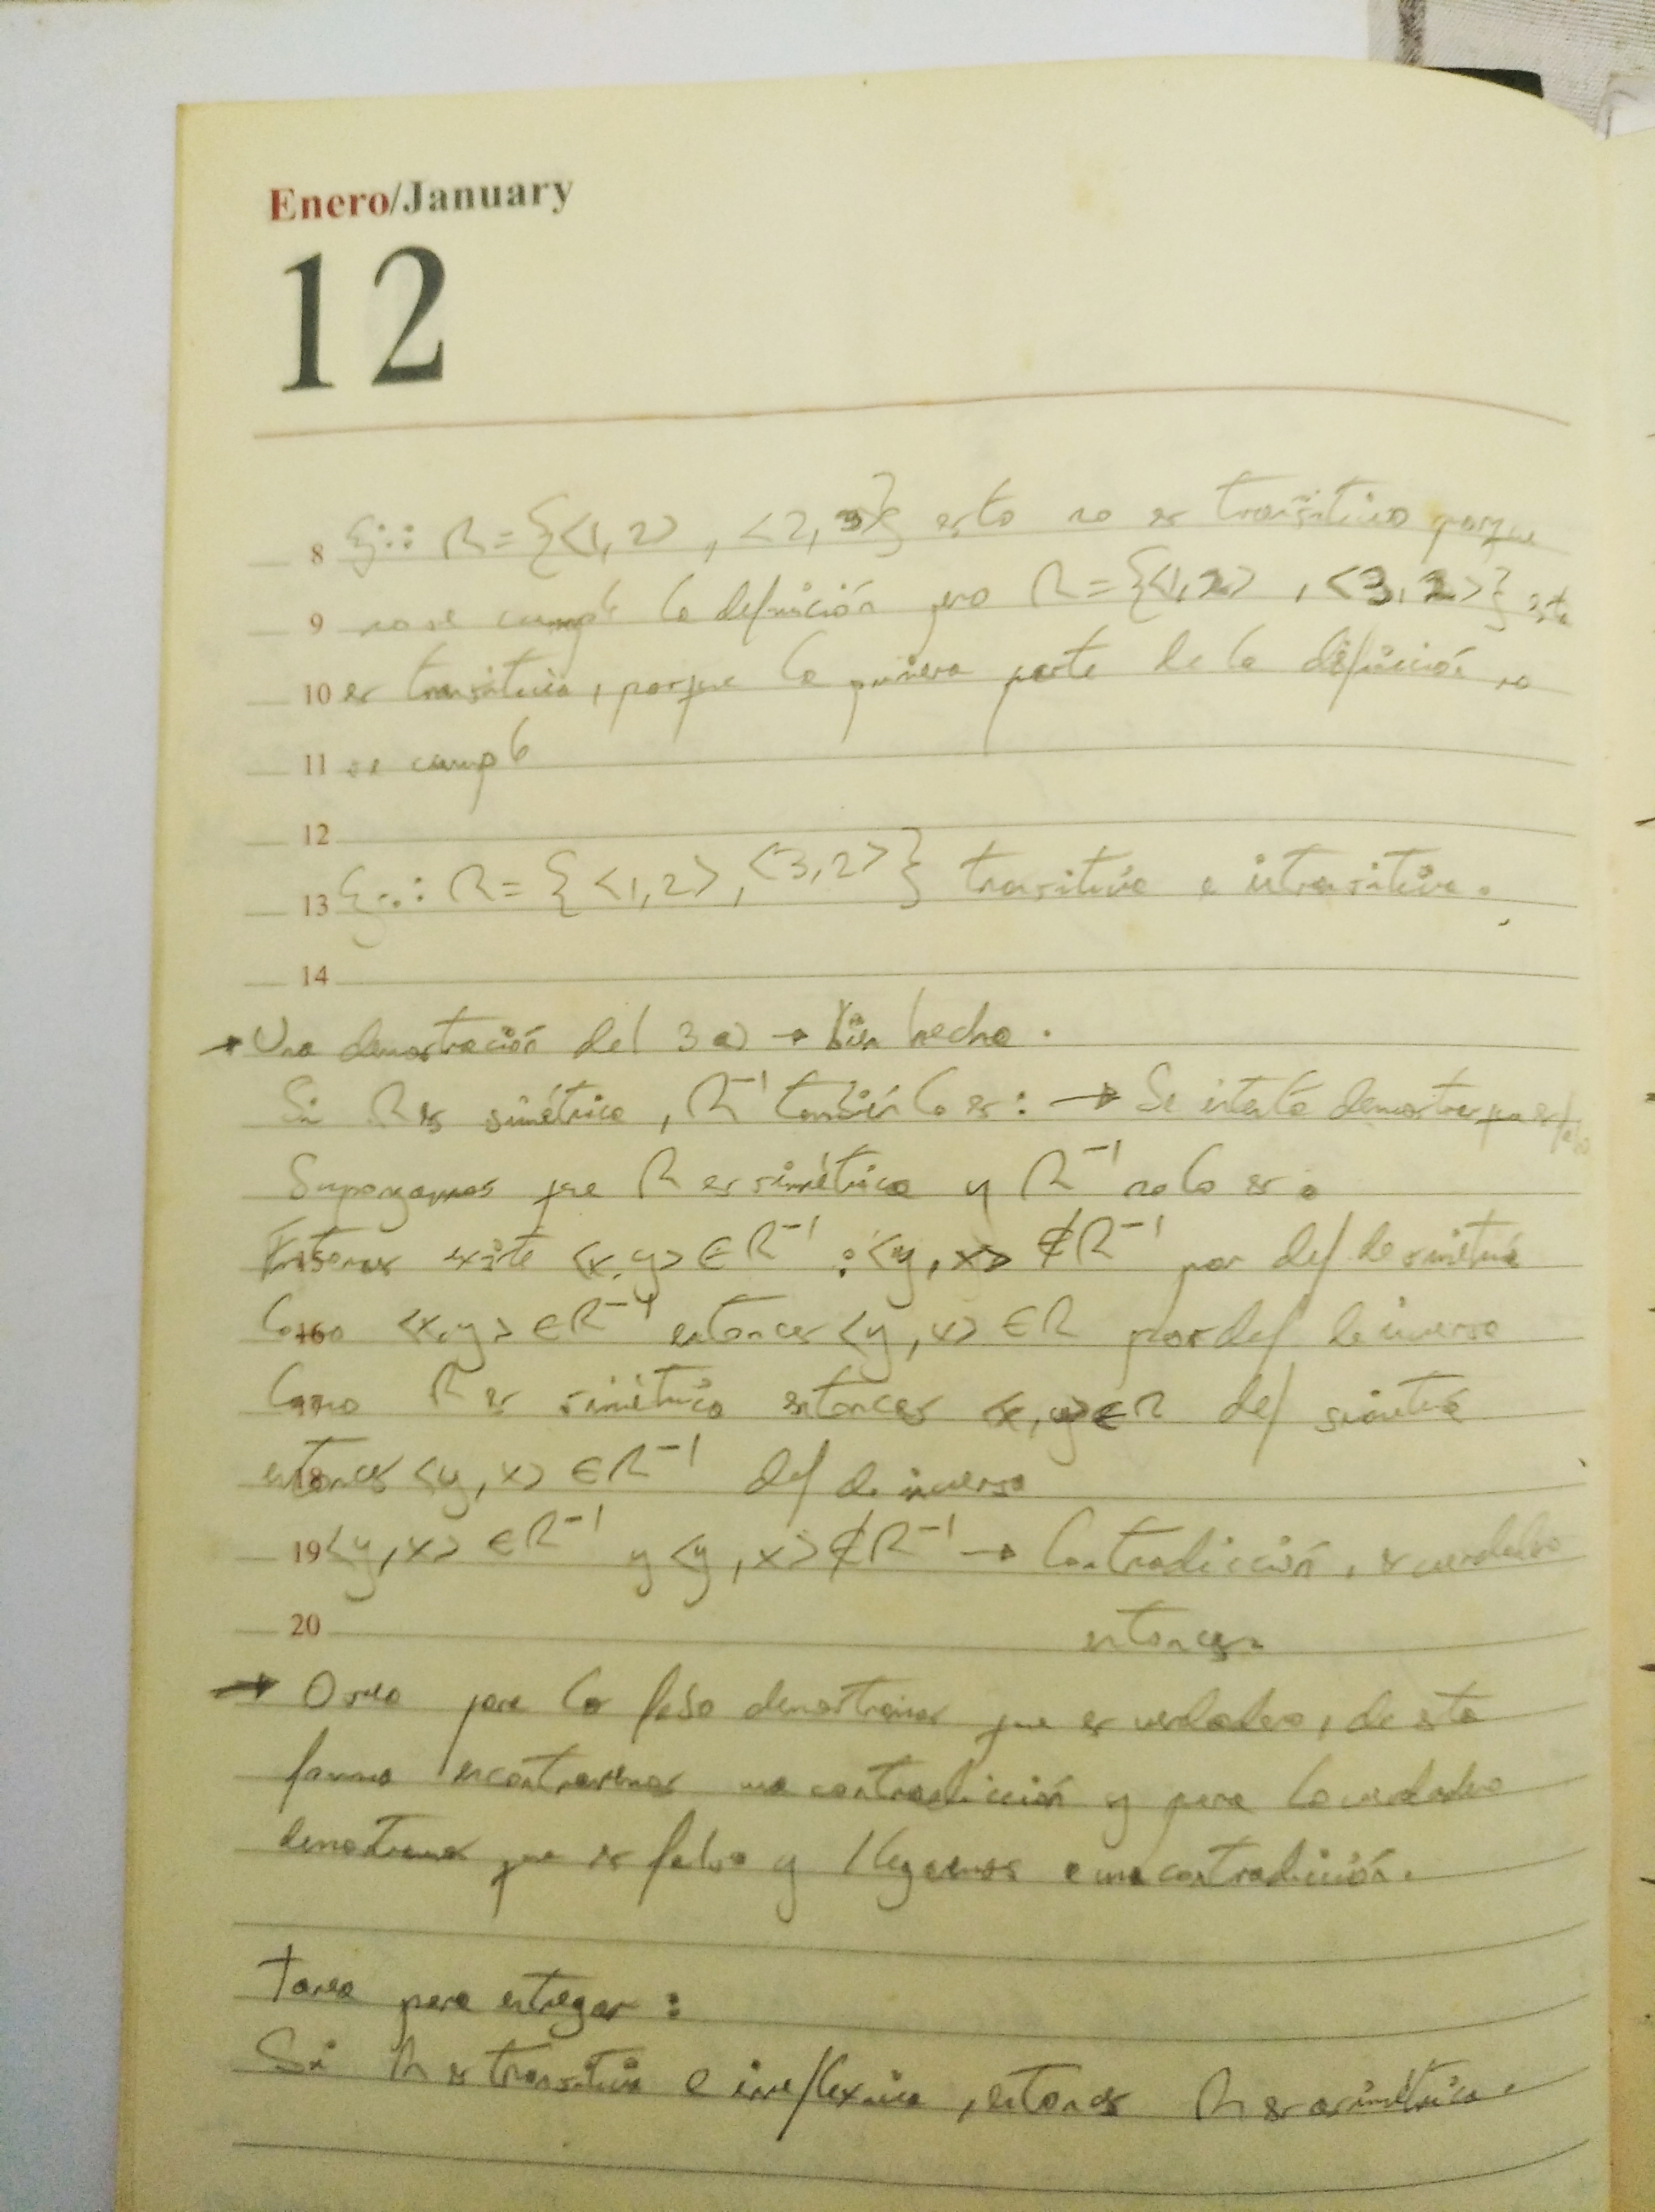 Enero/January
12
8 Ej: R = {<1,2>, <2,3>} esto no es transitivo porque
9 no se cumple la definición pero R = {<1,2>, <3,2>} esto
10 es transitiva, porque la primera parte de la definición no
11 se cumple
12
13 Ej: R = {<1,2>, <3,2>} transitiva e intransitiva.
14
→ Una demostración del 3a) → bien hecho.
Si R es simétrica, R⁻¹ también lo es: → Se intenta demostrar que es falso
Supongamos que R es simétrica y R⁻¹ no lo es.
Entonces existe <x,y> ∈ R⁻¹ : <y,x> ∉ R⁻¹ por def de simetría
16 Como <x,y> ∈ R⁻¹ entonces <y,x> ∈ R por def de inverso
Como R es simétrica entonces <x,y> ∈ R def simetría
18 entonces <y,x> ∈ R⁻¹ def de inverso
19 <y,x> ∈ R⁻¹ y <y,x> ∉ R⁻¹ → Contradicción, es verdadero
20 entonces.
→ O sea para lo falso demostramos que es verdadero, de esta
forma encontraremos una contradicción y para lo verdadero
demostramos que es falso y llegamos a una contradicción.
Tarea para entregar:
Si R es transitiva e irreflexiva, entonces R es asimétrica.